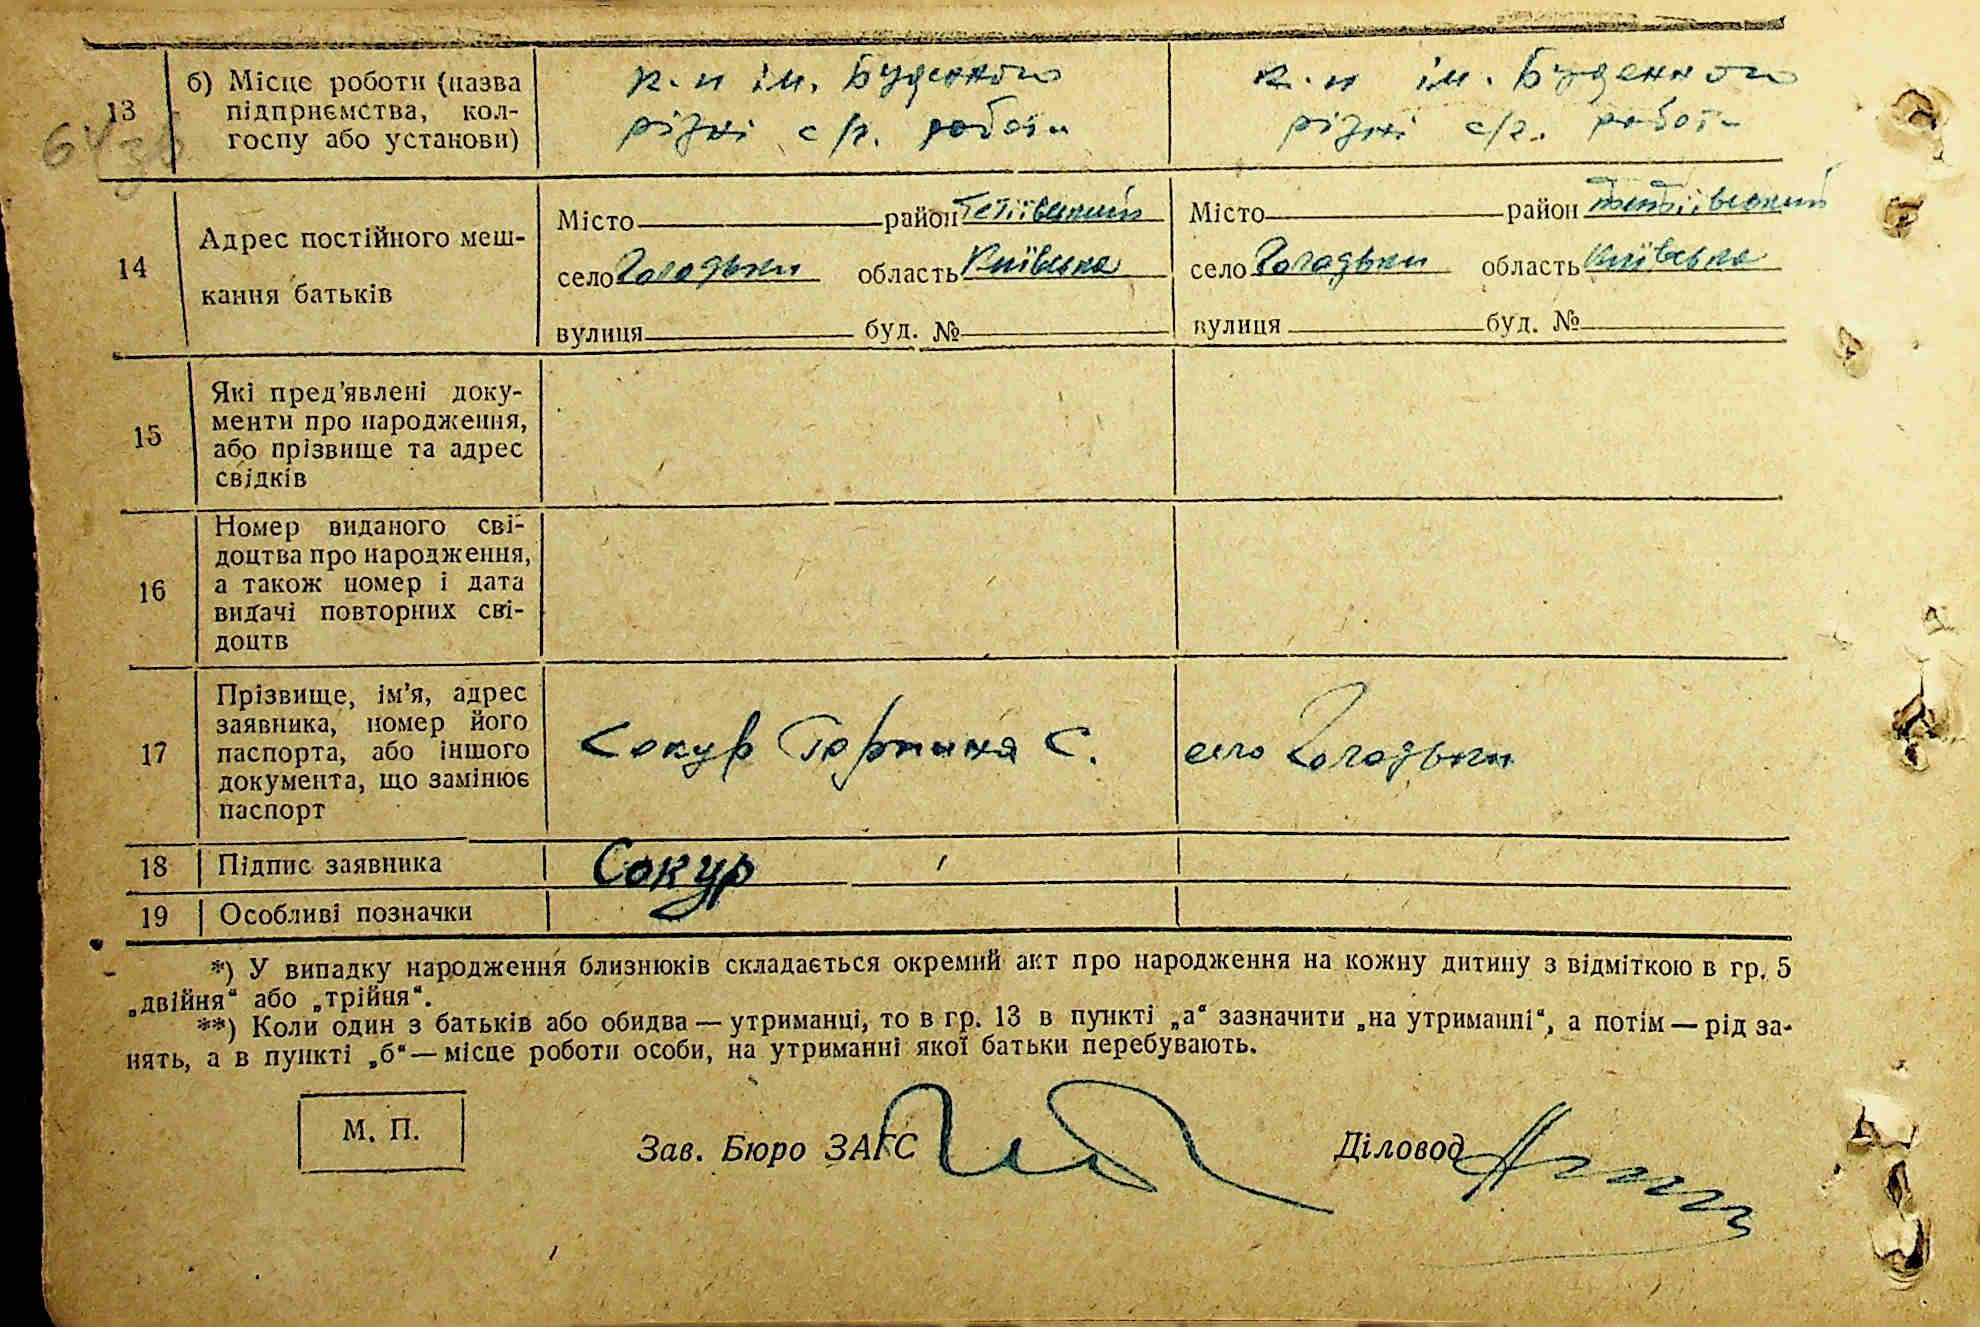 13
б) Місце роботи (назва
підприємства, кол-
госпу або установи)
к.п ім. Буденного
різні с/г. роботи
к.п ім. Буденного
різні с/г. роботи
14
Адрес постійного меш-
кання батьків
Місто район Тетіївський
село Голодьки область Київська
вулиця буд. №
Місто район Тетіївський
село Голодьки область Київська
вулиця буд. №
15
Які пред'явлені доку-
менти про народження,
або прізвище та адрес
свідків
16
Номер виданого сві-
доцтва про народження,
а також номер і дата
видачі повторних сві-
доцтв
17
Прізвище, ім'я, адрес
заявника, номер його
паспорта, або іншого
документа, що замінює
паспорт
Сокур Горпина С.
село Голодьки
18 Підпис заявника Сокур
19 Особливі позначки
*) У випадку народження близнюків складається окремий акт про народження на кожну дитину з відміткою в гр. 5
„двійня“ або „трійня“.
**) Коли один з батьків або обидва — утриманці, то в гр. 13 в пункті „а“ зазначити „на утриманні“, а потім — рід за-
нять, а в пункті „б“ — місце роботи особи, на утриманні якої батьки перебувають.
М. П.
Зав. Бюро ЗАГС
Діловод